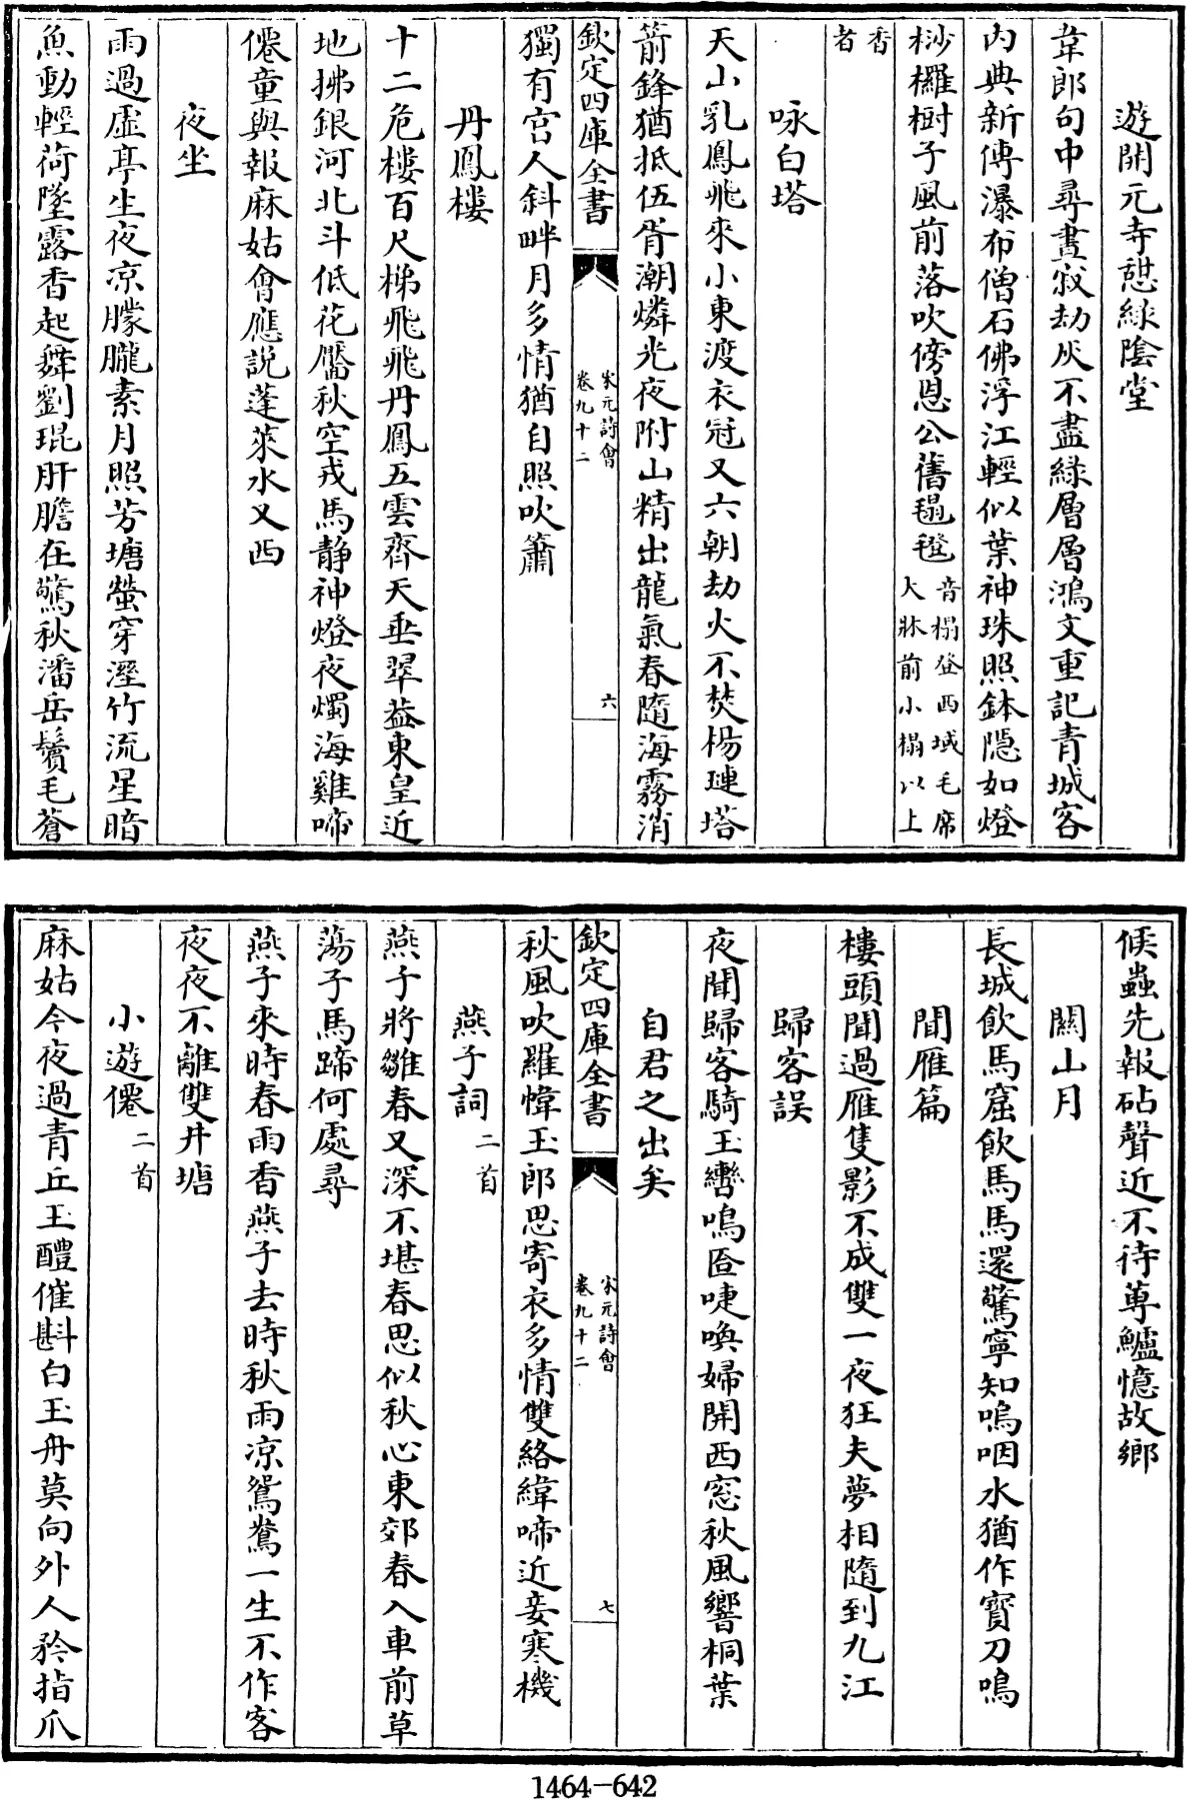 遊開元寺憇綠陰堂
韋郎句中尋晝寂劫灰不盡綠層層鴻文重記青城客
内典新傳瀑布僧石佛浮江輕似葉神珠照鉢隠如燈
桫欏樹子風前落吹傍恩公舊毾㲪音榻登西域毛席大牀前小榻以上
香者
咏白塔
天山乳鳳飛來小東渡衣冠又六朝劫火不焚楊璉塔
箭鋒猶抵伍胥潮燐光夜附山精出龍氣春隨海霧消
欽定四庫全書 宋元詩會 卷九十二 六
獨有宫人斜畔月多情猶自照吹簫
丹鳳樓
十二危樓百尺梯飛飛丹鳳五雲齊天垂翠葢東皇近
地拂銀河北斗低花靨秋空戎馬静神燈夜燭海雞啼
僊童與報麻姑會應説蓬萊水又西
夜坐
雨過虚亭生夜凉朦朧素月照芳塘螢穿溼竹流星暗
魚動輕荷墜露香起舞劉琨肝膽在驚秋潘岳鬢毛蒼
候蟲先報砧聲近不待蓴鱸憶故鄉
關山月
長城飲馬窟飲馬馬還驚寧知嗚咽水猶作寳刀鳴
聞雁篇
樓頭聞過雁隻影不成雙一夜狂夫夢相隨到九江
歸客誤
夜聞歸客騎玉轡鳴匼唼喚婦開西窓秋風響桐葉
自君之出矣
欽定四庫全書 宋元詩會 卷九十二 七
秋風吹羅幃玉郎思寄衣多情雙絡緯啼近妾寒機
燕子詞二首
燕子將雛春又深不堪春思似秋心東郊春入車前草
蕩子馬蹄何處尋
燕子來時春雨香燕子去時秋雨凉鴛鴦一生不作客
夜夜不離雙井塘
小遊僊二首
麻姑今夜過青丘玉醴催斟白玉舟莫向外人矜指爪
1464-642